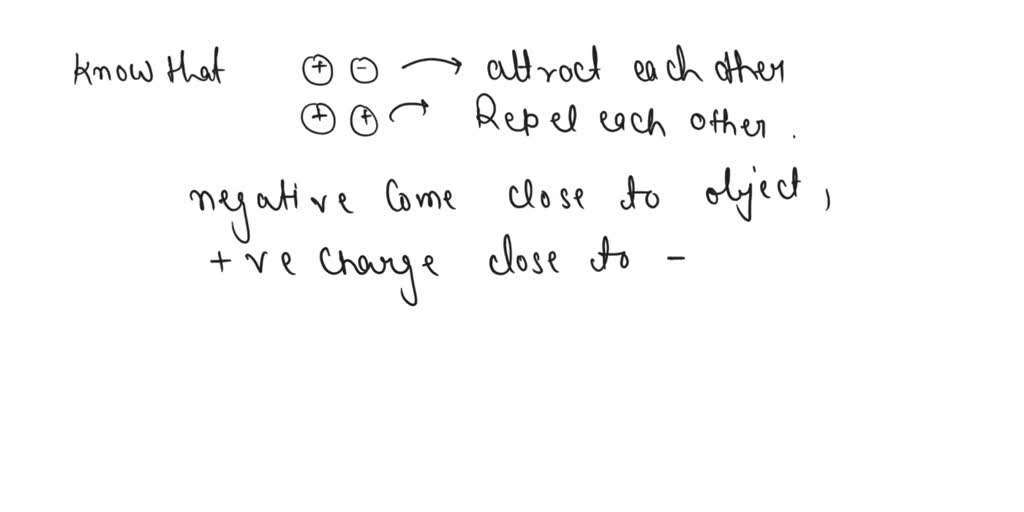 know that ⊕ ⊖ → attract each other
⊕ ⊕ → Repel each other.
negative Come close to object,
+ve charge close to -